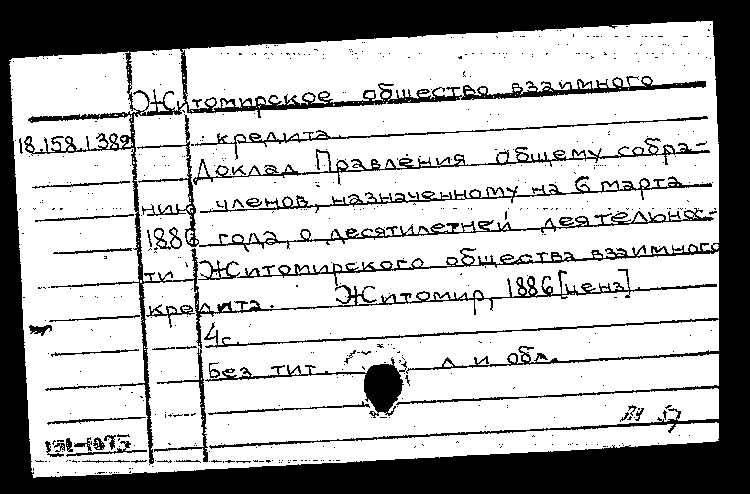 Житомирское общество взаимного
18.158.1.382 кредита.
Доклад Правления общему собра-
нию членов, назначенному на 6 марта
1886 года, о десятилетней деятельнос-
ти Житомирского общества взаимного
кредита. Житомир, 1886 [ценз].
4с.
Без тит. л и обл.